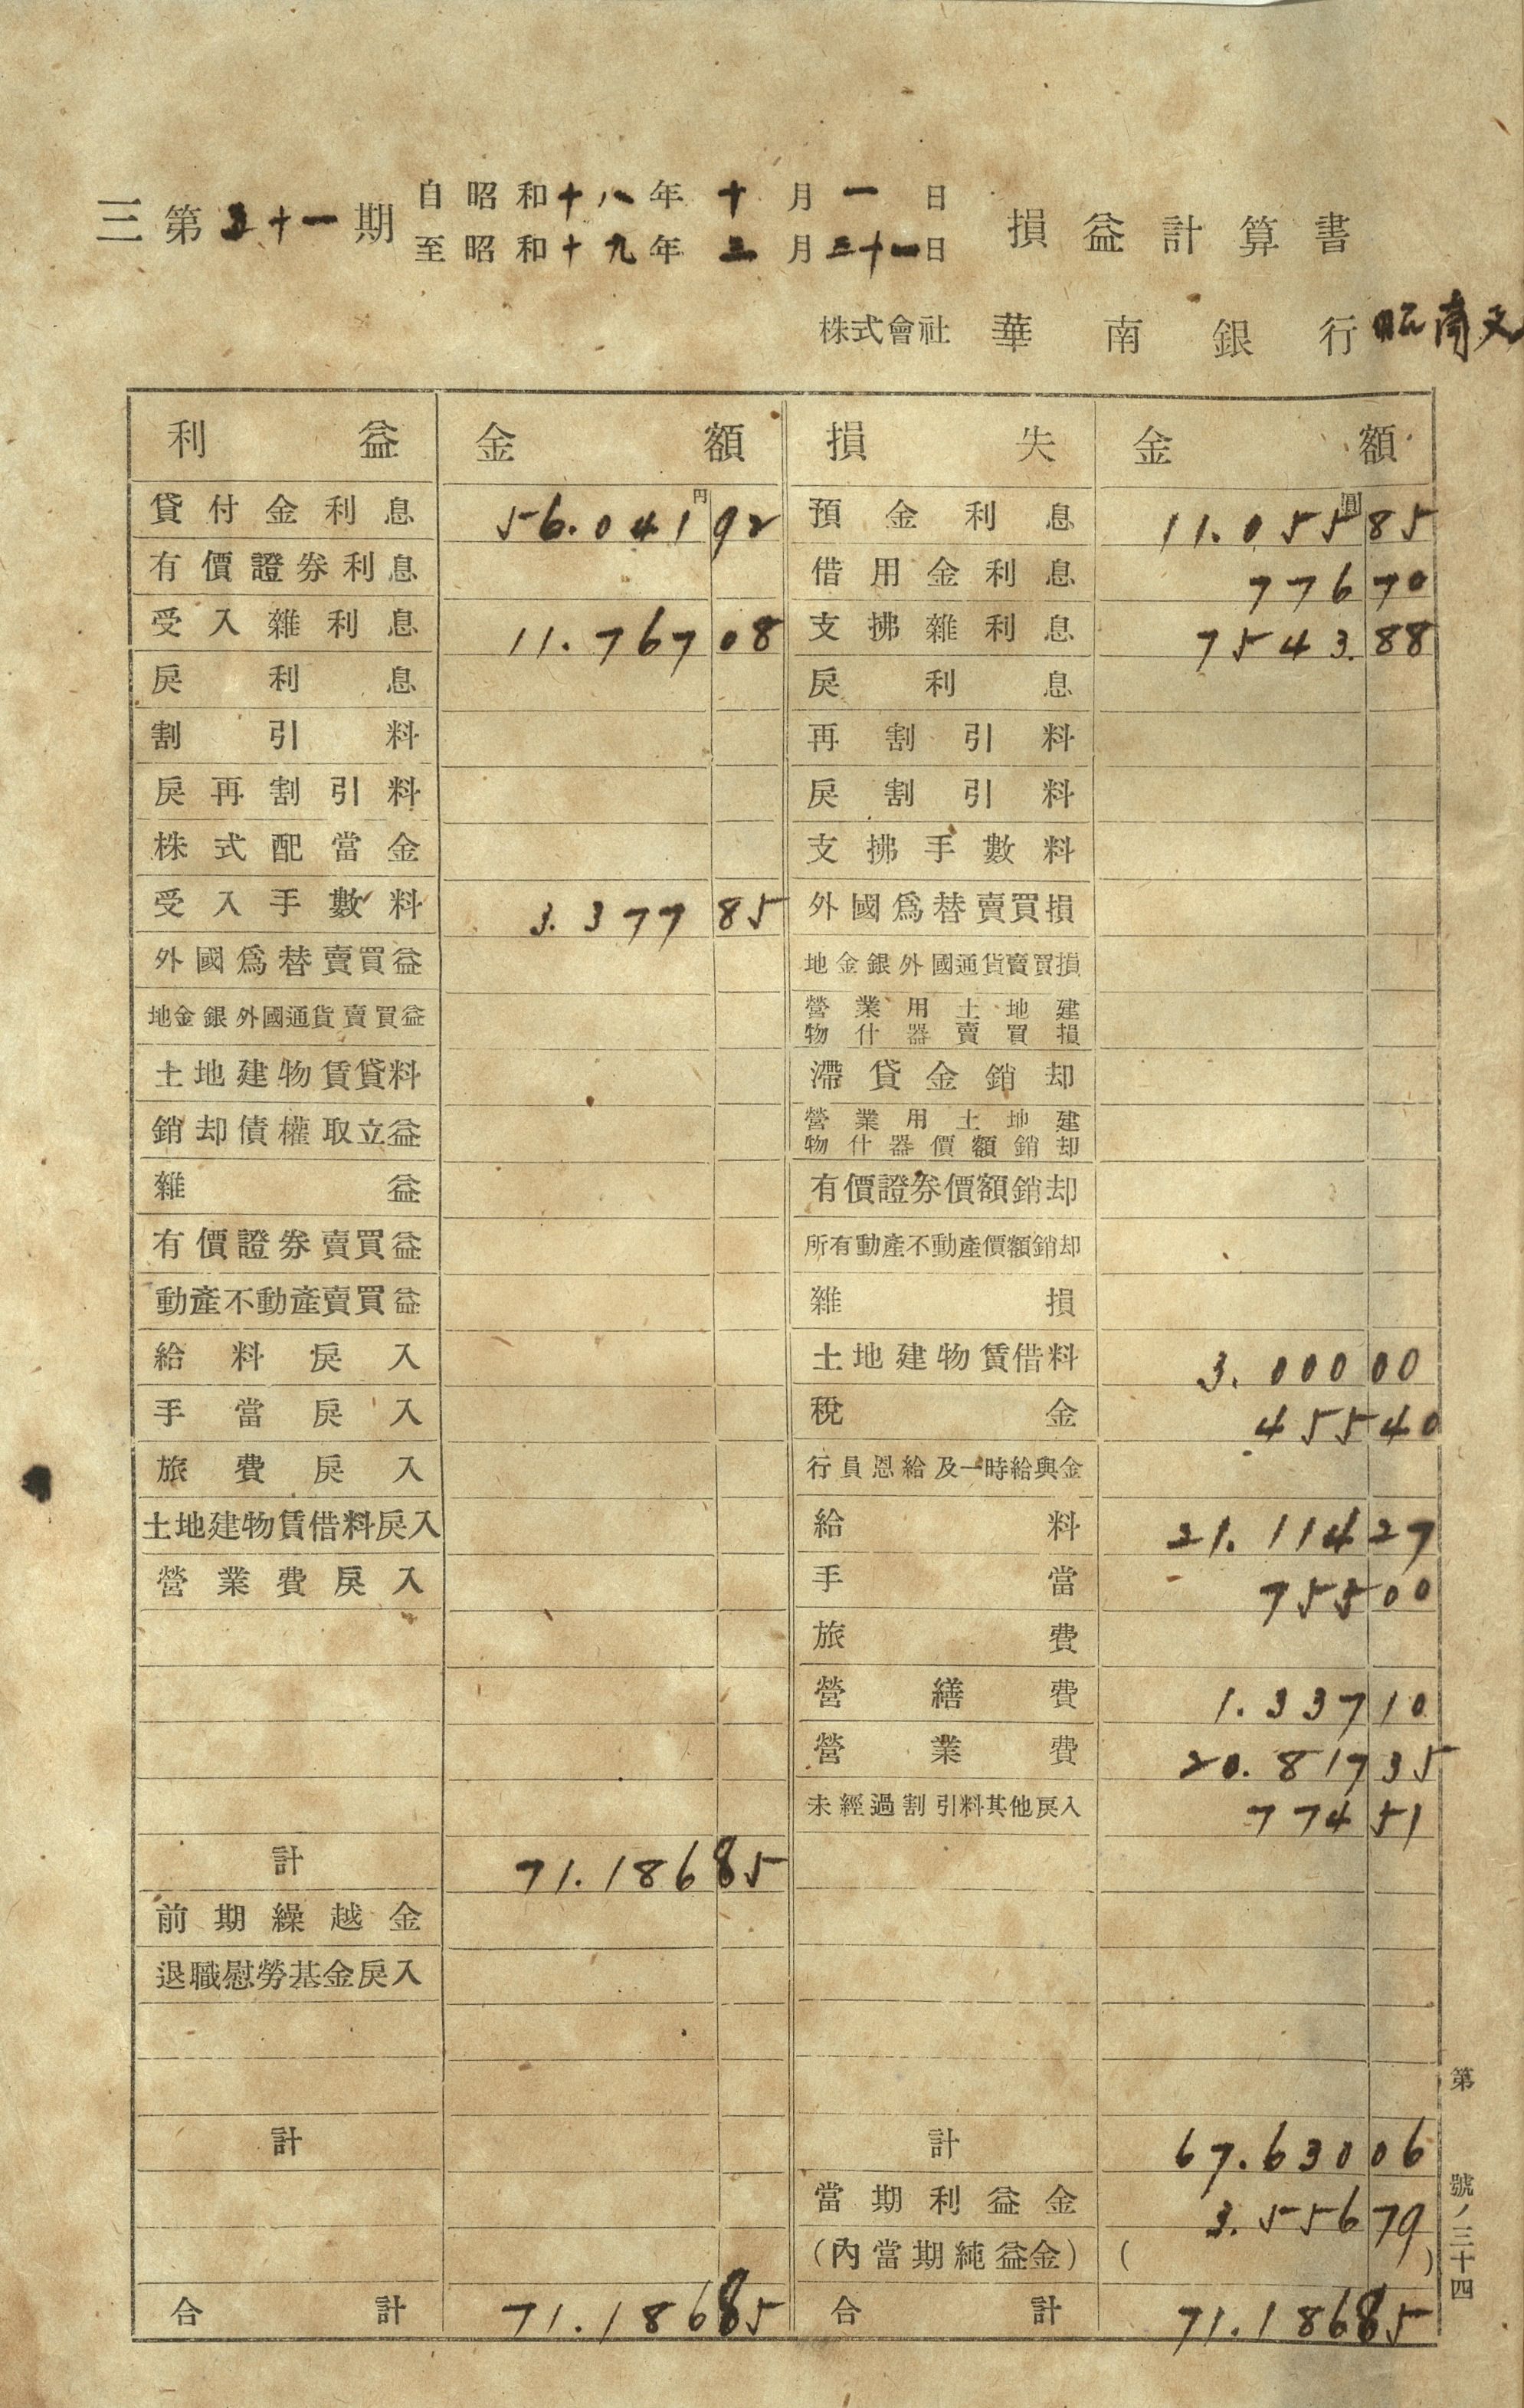 三 第五十一期 自昭和十八年十月一日 至昭和十九年三月三十一日 損益計算書
株式會社 華南銀行 昭南支
利益 金額 損失 金額
貸付金利息 56.041円92 預金利息 11.055圓85
有價證券利息 借用金利息 776 70
受入雜利息 11.767 08 支拂雜利息 7543.88
戾利息 戾利息
割引料 再割引料
戾再割引料 戾割引料
株式配當金 支拂手數料
受入手數料 3.377 85 外國爲替賣買損
外國爲替賣買益 地金銀外國通貨賣買損
地金銀外國通貨賣買益 營業用土地建物什器賣買損
土地建物賃貸料 滯貸金銷却
銷却債權取立益 營業用土地建物什器價額銷却
雜益 有價證券價額銷却
有價證券賣買益 所有動產不動產價額銷却
動產不動產賣買益 雜損
給料戾入 土地建物賃借料 3.000 00
手當戾入 稅金 455 40
旅費戾入 行員恩給及一時給與金
土地建物賃借料戾入 給料 21.114 27
營業費戾入 手當 755 00
旅費
營繕費 1.337 10
營業費 20.817 35
未經過割引料其他戾入 774 51
計 71.186 85
前期繰越金
退職慰勞基金戾入
計 計 67.630 06
當期利益金 3.556 79
(內當期純益金) ( )
合計 71.186 85 合計 71.186 85
第 號ノ三十四